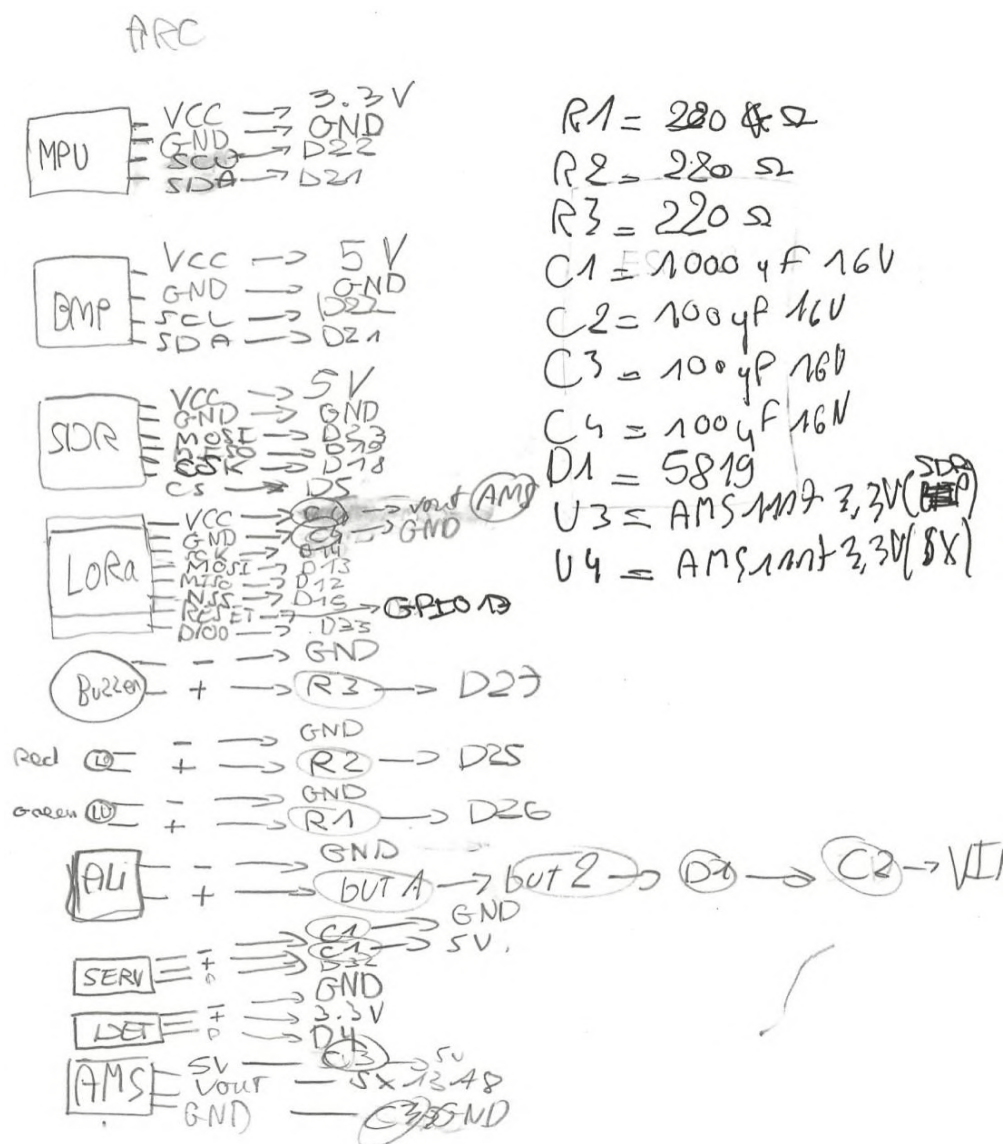 ARC
MPU
VCC → 3.3V
GND → GND
→ D22
SDA → D21
BMP
VCC → 5V
GND → GND
SCL → D22
SDA → D21
SDR
VCC → 5V
GND → GND
MOSI → D23
MISO → D19
SCK → D18
CS → D5
LORa
VCC → → Vout AMS
GND → C4 → GND
SCK → D14
MOSI → D13
MISO → D12
NSS → D15
RESET → GPIO17
DIO0 → D23
Buzzer
- → GND
+ → R3 → D27
Red
- → GND
+ → R2 → D25
Green
- → GND
+ → R1 → D26
ALi
- → GND
+ → but 1 → but 2 → D1 → C2 → VI
SERV
- → C1 → GND
+ → C1 → 5V.
→ D32
DET
- → GND
+ → 3.3V
→ D4
AMS
5V → C3 → 5V
Vout — SX
GND — C3 GND
R1 = 220 Ω
R2 = 220 Ω
R3 = 220 Ω
C1 = 1000 µF 16V
C2 = 100 µF 16V
C3 = 100 µF 16V
C4 = 100 µF 16V
D1 = 5819
U3 = AMS1117 3,3V (SDR)
U4 = AMS1117 3,3V (SX)